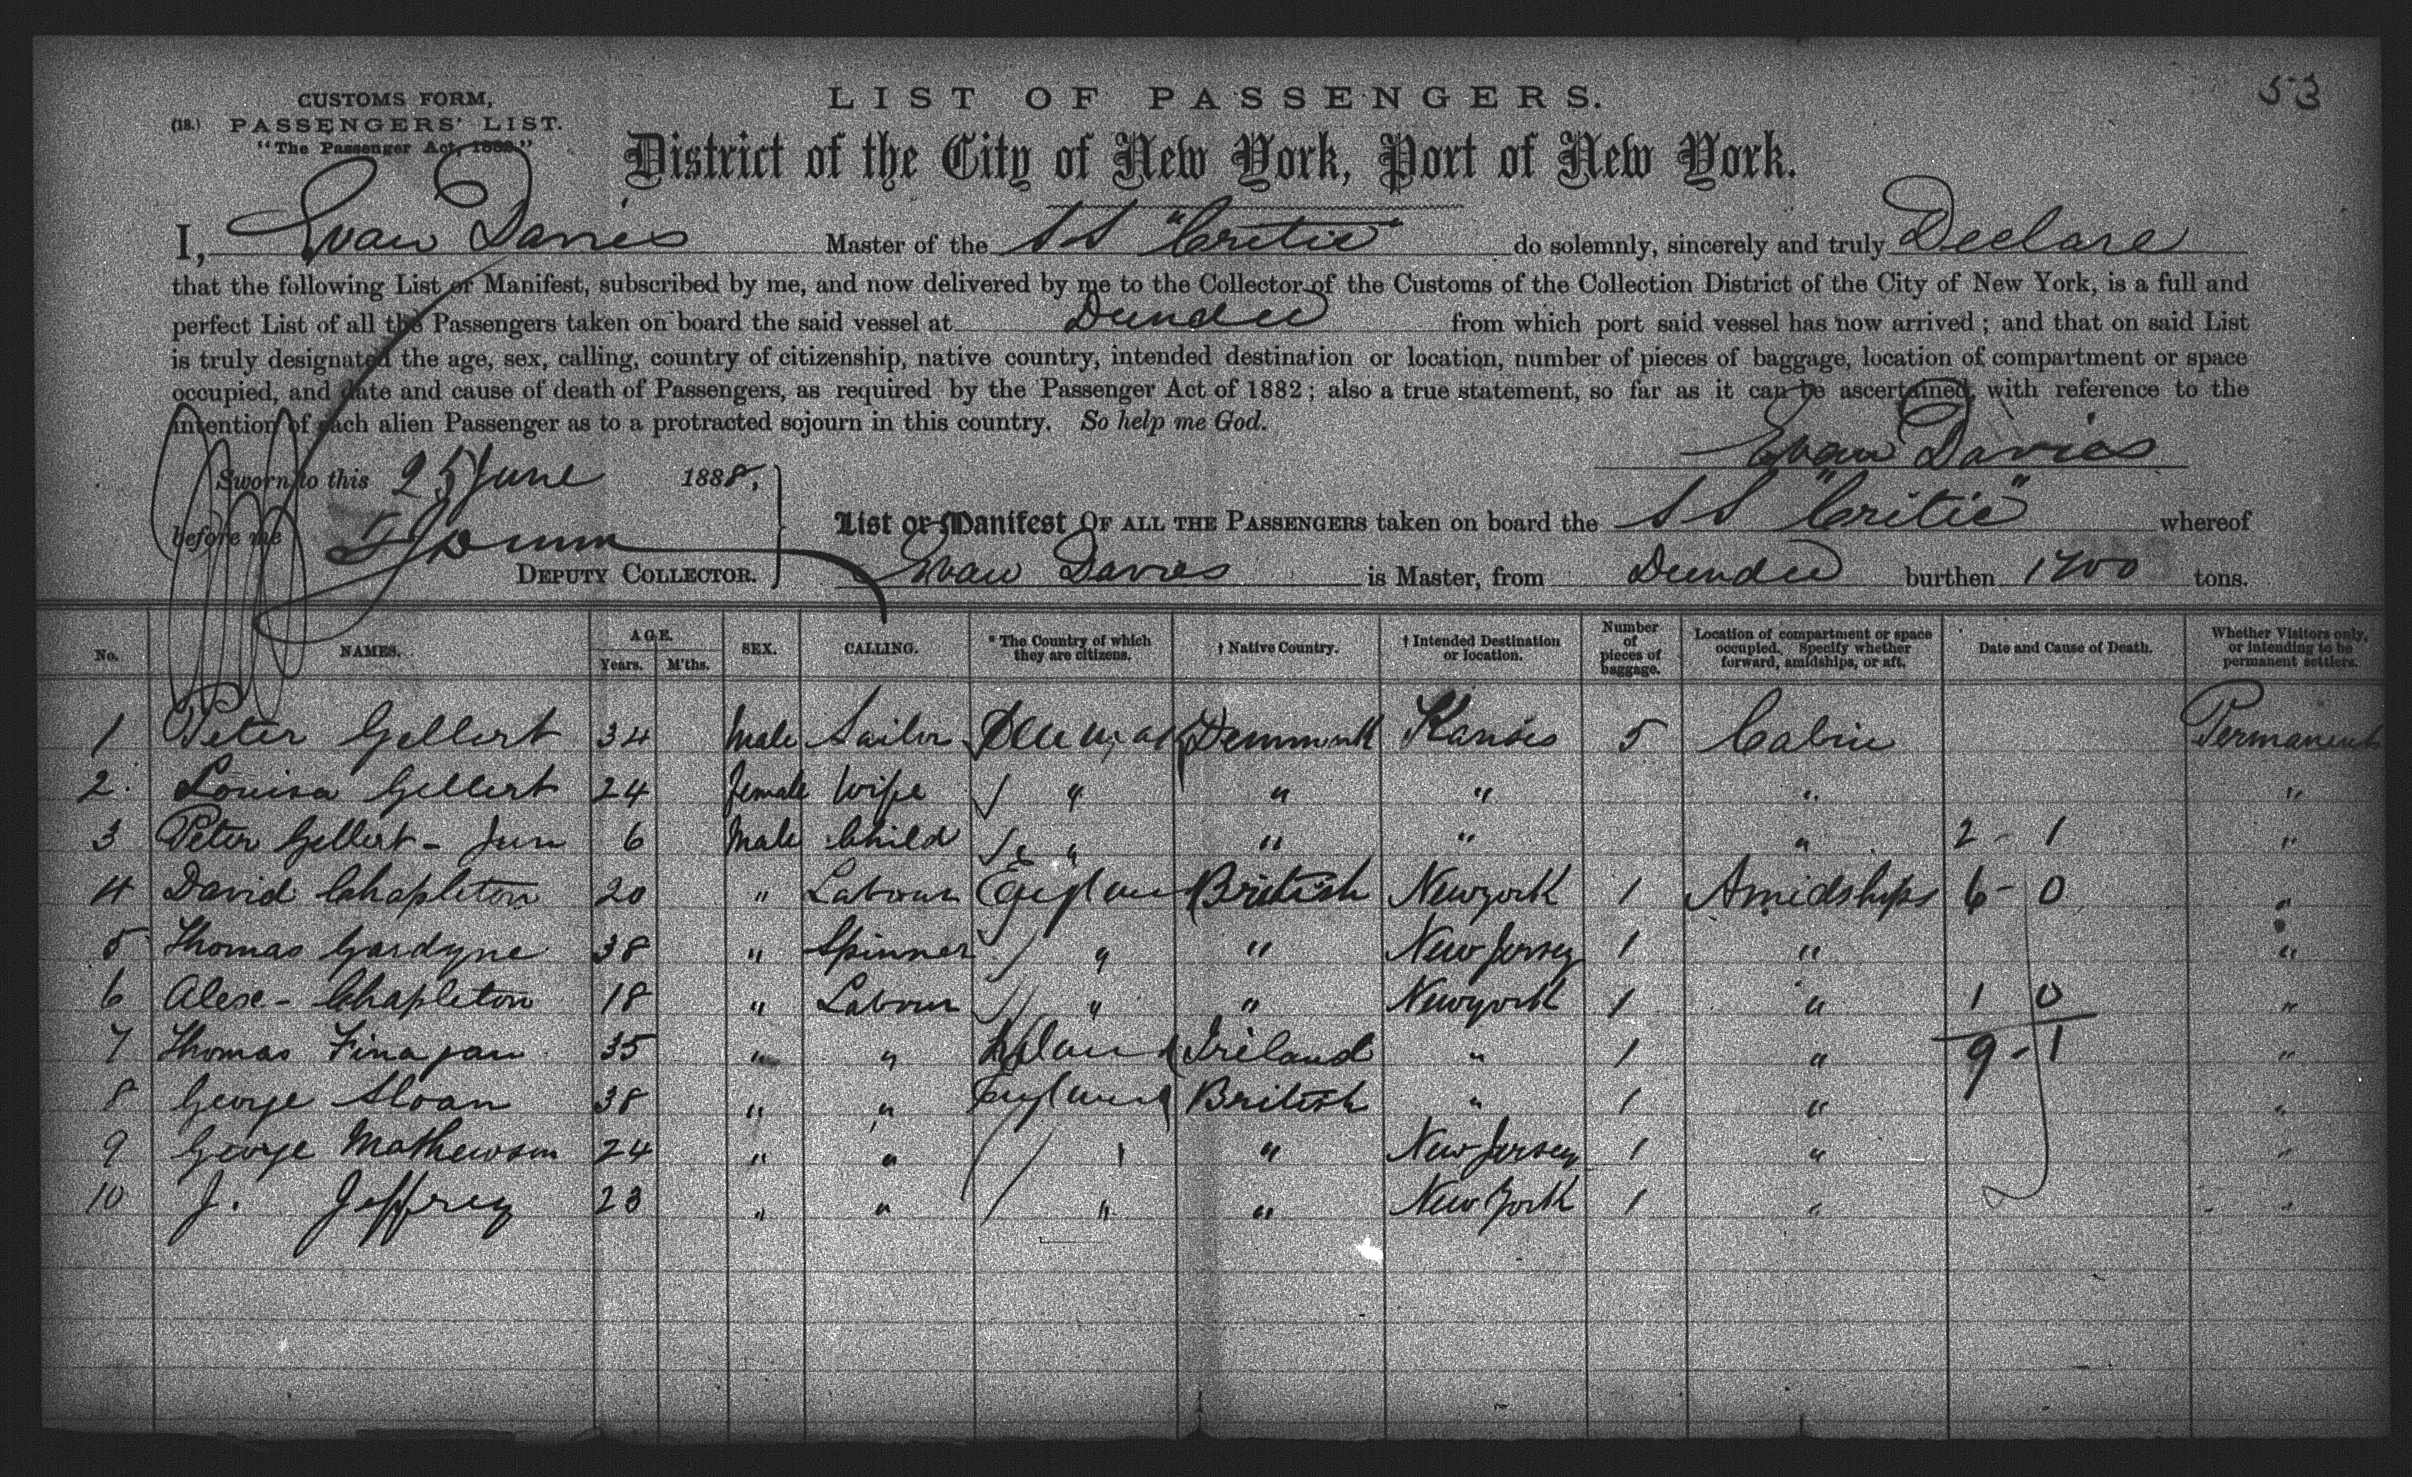 53
CUSTOMS FORM,
(18.) PASSENGERS' LIST.
"The Passenger Act, 1882."
LIST OF PASSENGERS.
District of the City of New York, Port of New York.
I, Evan Davies Master of the S S "Critic" do solemnly, sincerely and truly Declare
that the following List or Manifest, subscribed by me, and now delivered by me to the Collector of the Customs of the Collection District of the City of New York, is a full and
perfect List of all the Passengers taken on board the said vessel at Dundee from which port said vessel has now arrived; and that on said List
is truly designated the age, sex, calling, country of citizenship, native country, intended destination or location, number of pieces of baggage, location of compartment or space
occupied, and date and cause of death of Passengers, as required by the Passenger Act of 1882; also a true statement, so far as it can be ascertained, with reference to the
intention of each alien Passenger as to a protracted sojourn in this country. So help me God.
Evan Davies
Sworn to this 25 June 1888,
before me
DEPUTY COLLECTOR.
List or Manifest OF ALL THE PASSENGERS taken on board the S S "Critic" whereof
Evan Davies is Master, from Dundee burthen 1700 tons.
No. NAMES. AGE. Years. M'ths. SEX. CALLING. * The Country of which they are citizens. † Native Country. † Intended Destination or location. Number of pieces of baggage. Location of compartment or space occupied. Specify whether forward, amidships, or aft. Date and Cause of Death. Whether Visitors only, or intending to be permanent settlers.
1 Peter Gellert 34 Male Sailor Denmark Kansis 5 Cabin Permanent
2. Louisa Gellert 24 female Wife " " " " "
3 Peter Gellert - Jun 6 Male Child " " " " 2 - 1 "
4 David Chapleton 20 " Labour England British Newyork 1 Amidships 6 - 0 "
5 Thomas Gardyne 38 " Spinner " " New Jersey 1 " "
6 Alex - Chapleton 18 " Labour " " Newyork 1 " 1 0 "
7 Thomas Finagan 35 " " Ireland " 1 " 9 - 1 "
8 George Sloan 38 " " England British " 1 " "
9 George Mathewson 24 " " " " New Jersey 1 " "
10 J. Jeffrey 23 " " " " New York 1 " "